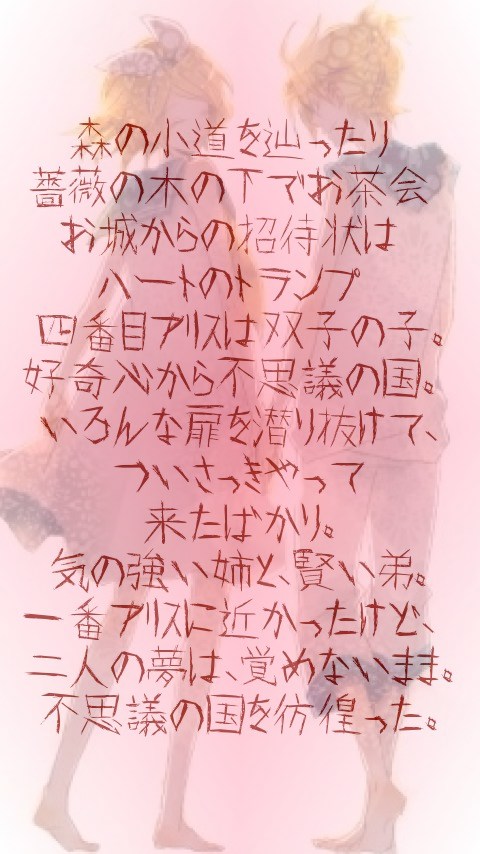 森の小道を辿ったり
薔薇の木の下でお茶会
お城からの招待状は
ハートのトランプ
四番目アリスは双子の子。
好奇心から不思議の国。
いろんな扉を潜り抜けて、
ついさっきやって
来たばかり。
気の強い姉と、賢い弟。
一番アリスに近かったけど、
二人の夢は、覚めないまま。
不思議の国を彷徨った。